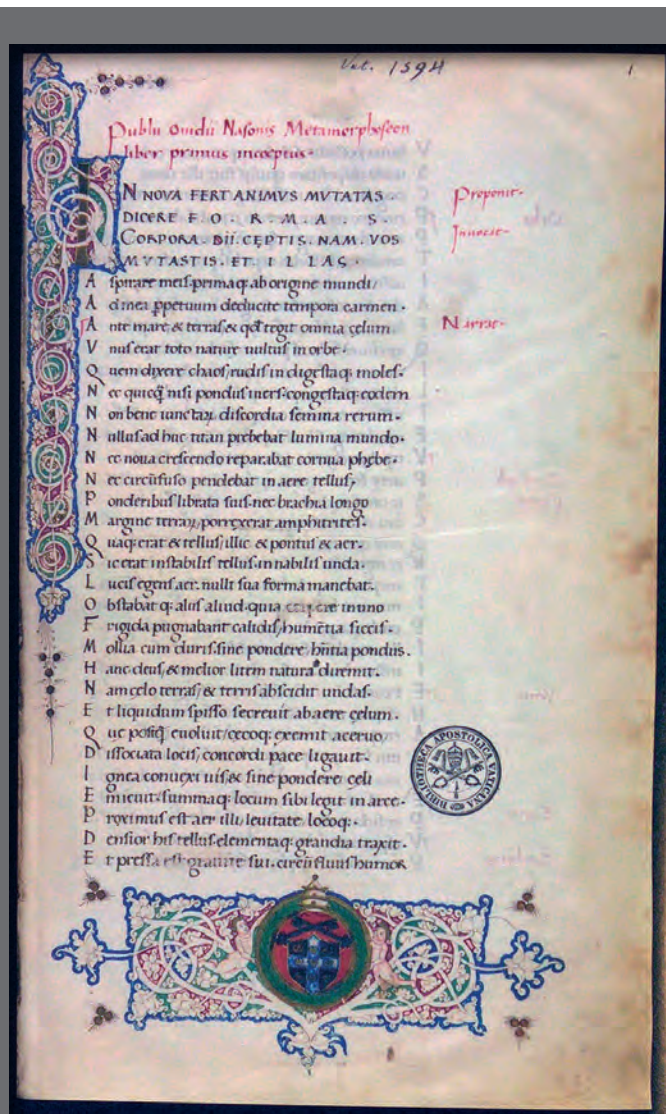 Vat. 1594
1
Publii Ouidii Nasonis Metamorphoseon
liber primus inceptus.
IN NOVA FERT ANIMVS MVTATAS
DICERE FORMAS.
CORPORA. DII. CĘPTIS. NAM. VOS
MVTASTIS. ET. ILLAS.
Proponit.
Inuocat.
A spirate meis. primaq; ab origine mundi/
A d mea ꝑpetuum deducite tempora carmen.
A nte mare & terras & qđ tegit omnia cęlum
Narrat.
V nus erat toto nature uultus in orbe.
Q uem dixere chaos/ rudis indigestaq; moles.
N ec quicq̃ nisi pondus iners. congestaq; eodem
N on bene iunctaꝝ discordia semina rerum.
N ullus ad huc titan prebebat lumina mundo.
N ec noua crescendo reparabat cornua phębe.
N ec circũfuso pendebat in aere tellus/
P onderibus librata suis. nec brachia longo
M argine terraꝝ porrexerat amphitrites.
Q uaq; erat & tellus/ illic & pontus & aer.
S ic erat instabilis tellus. innabilis unda.
L ucis egens aer. nulli sua forma manebat.
O bstabat q; aliis aliud. quia corpore in uno
F rigida pugnabant calidis/ humẽtia siccis.
M ollia cum duris. sine pondere hñtia pondus.
H anc deus/ & melior litem natura diremit.
N am celo terras/ & terris abscidit undas.
E t liquidum spisso secreuit ab aere cęlum.
Q ue postq̃ euoluit/ cęcoq; exemit aceruo
D issociata locis/ concordi pace ligauit.
I gnea conuexi uis & sine pondere cęli
E micuit. summaq; locum sibi legit in arce.
P roximus est aer illi leuitate locoq;.
D ensior his tellus. elementaq; grandia traxit.
E t pressa est grauitate sui. circũfluus humor
BIBLIOTHECA APOSTOLICA VATICANA